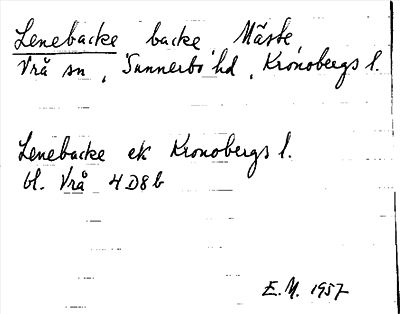 Lenebacke backe, Mäste,
Vrå sn, Sunnerbo hd, Kronobergs l.
Lenebacke ek Kronobergs l.
bl. Vrå 4D8b
E.M. 1957